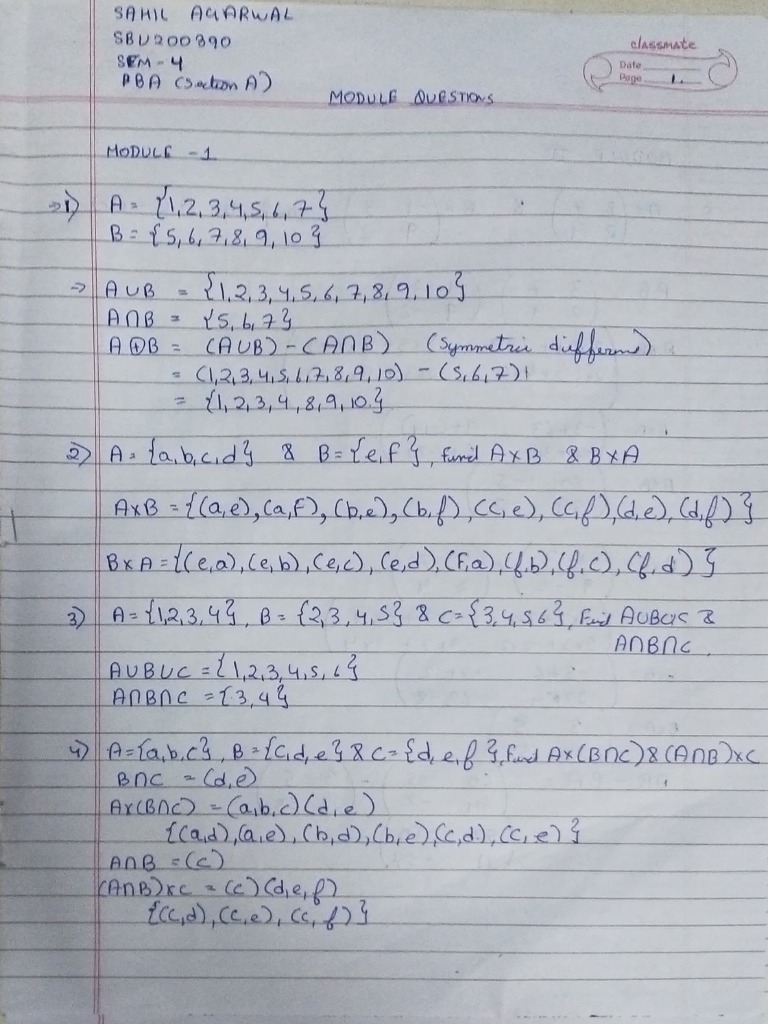 SAHIL AGARWAL
SBU200390
SEM-4
BBA (Section A)
classmate
Date
Page 1.
MODULE QUESTIONS
MODULE -1
⇒1) A = {1,2,3,4,5,6,7}
B = {5,6,7,8,9,10}
⇒ A∪B = {1,2,3,4,5,6,7,8,9,10}
A∩B = {5,6,7}
A⊕B = (A∪B)-(A∩B) (Symmetric
= (1,2,3,4,5,6,7,8,9,10) - (5,6,7)
= {1,2,3,4,8,9,10}
2) A = {a,b,c,d} & B = {e,f}, find A×B & B×A
A×B = {(a,e),(a,f),(b,e),(b,f),(c,e),(c,f)(d,e),(d,f)}
B×A = {(e,a),(e,b),(e,c),(e,d),(f,a),(f,b),(f,c),(f,d)}
3) A = {1,2,3,4}, B = {2,3,4,5} & C = {3,4,5,6}, Find A∪B∪C &
A∩B∩C.
A∪B∪C = {1,2,3,4,5,6}
A∩B∩C = {3,4}
4) A={a,b,c}, B={c,d,e} & C={d,e,f}, find A×(B∩C)&(A∩B)×C
B∩C = (d,e)
A×(B∩C) = (a,b,c)(d,e)
{(a,d),(a,e),(b,d),(b,e)(c,d),(c,e)}
A∩B = (c)
(A∩B)×C = (c)(d,e,f)
{(c,d),(c,e),(c,f)}